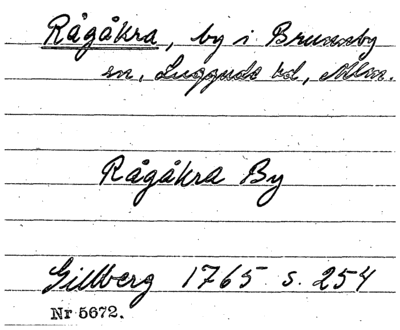 Rågåkra, by i Brunnby
sn, Luggude hd, Mlm.
Rågåkra By
Gillberg 1765 s. 254
Nr 5672.